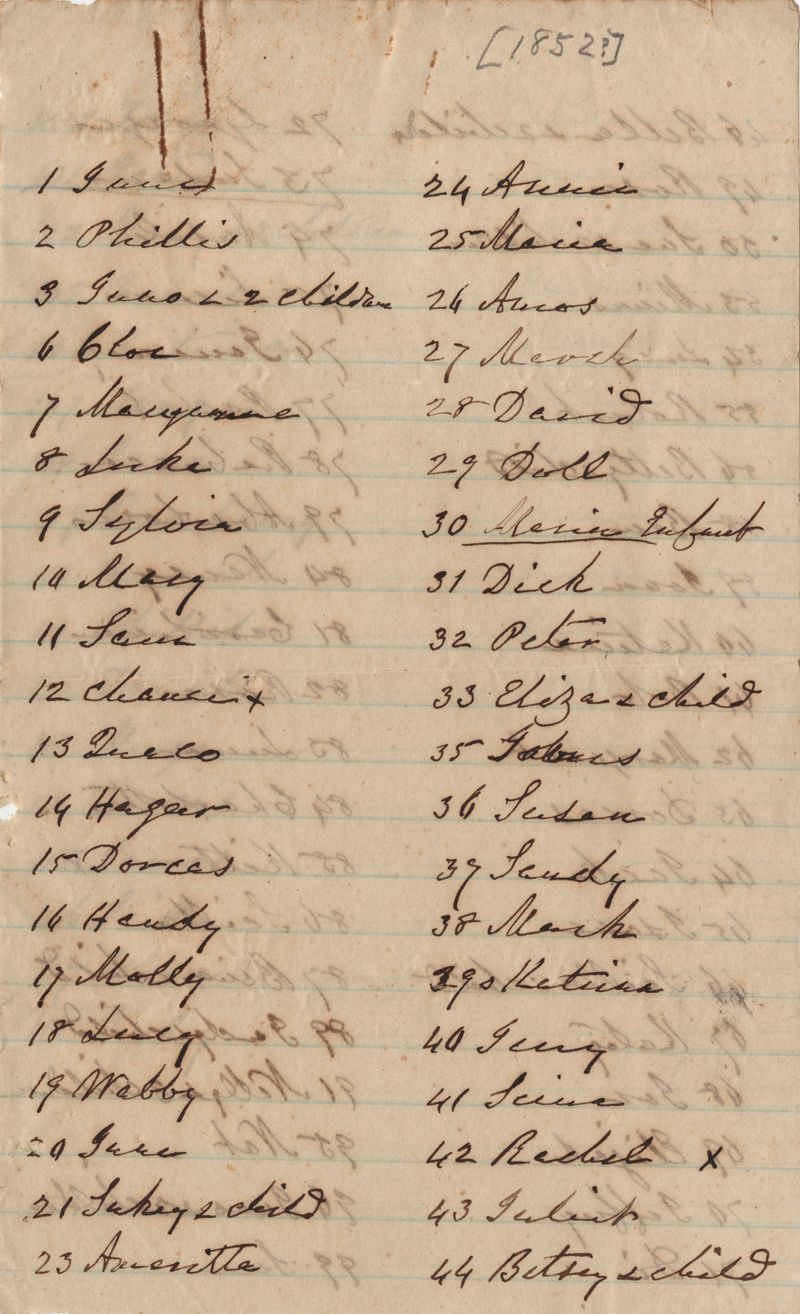 [1852?]
1
2 Phillis
3 Juno & 2 children
6 Cloe
7 Maryanne
8 Luke
9 Sylvia
10 Mary
11 Sam
12 x
13
14 Hagar
15 Dorcas
16 Handy
17 Molly
18 Lucy
19 Wabby
20
21 Sukey & child
23 Ameritta
24 Annie
25 Maria
26 Amos
27 March
28 David
29 Doll
30 Maria Infant
31 Dick
32 Peter
33 Eliza & child
35
36 Susan
37 Sandy
38 Mark
39 Katrina
40 Jerry
41
42 Rachel x
43 Juliet
44 Betsey & child